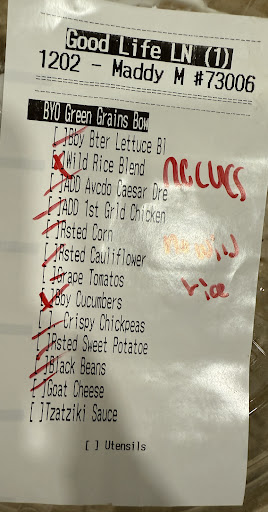 Good Life LN (1)
1202 - Maddy M #73006
BYO Green Grains Bow
[ ]Bby Bter Lettuce Bl
[ ]Wild Rice Blend
no cucs
[ ]ADD Avcdo Caesar Dre
[ ]ADD 1st Grld Chicken
[ ]Rsted Corn
no wild
[ ]Rsted Cauliflower
rice
[ ]Grape Tomatos
[ ]Bby Cucumbers
[ ] Crispy Chickpeas
[ ]Rsted Sweet Potatoe
[ ]Black Beans
[ ]Goat Cheese
[ ]Tzatziki Sauce
[ ] Utensils